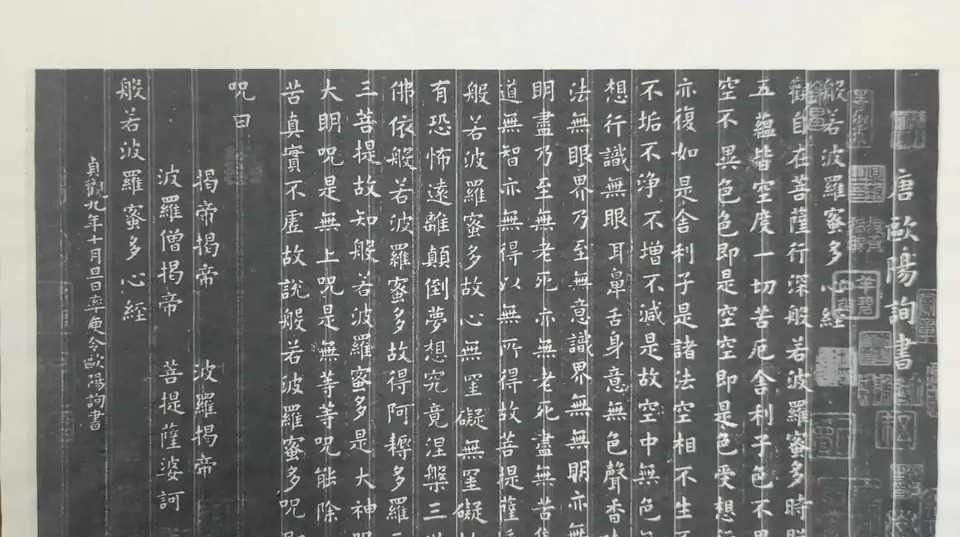 唐歐陽詢書
般若波羅蜜多心經
觀自在菩薩行深般若波羅蜜多時
五蘊皆空度一切苦厄舍利子色不
空不異色色即是空空即是色受想
亦復如是舍利子是諸法空相不生
不垢不淨不增不減是故空中無色
想行識無眼耳鼻舌身意無色聲香
法無眼界乃至無意識界無無明亦無
明盡乃至無老死亦無老死盡無苦集
道無智亦無得以無所得故菩提薩
般若波羅蜜多故心無罣礙無罣礙
有恐怖遠離顛倒夢想究竟涅槃三
佛依般若波羅蜜多故得阿耨多羅
三菩提故知般若波羅蜜多是大神
大明咒是無上咒是無等等咒能除
苦真實不虛故說般若波羅蜜多咒
咒曰
揭帝揭帝 波羅揭帝
波羅僧揭帝 菩提薩婆訶
般若波羅蜜多心經
貞觀九年十月旦日率更令歐陽詢書